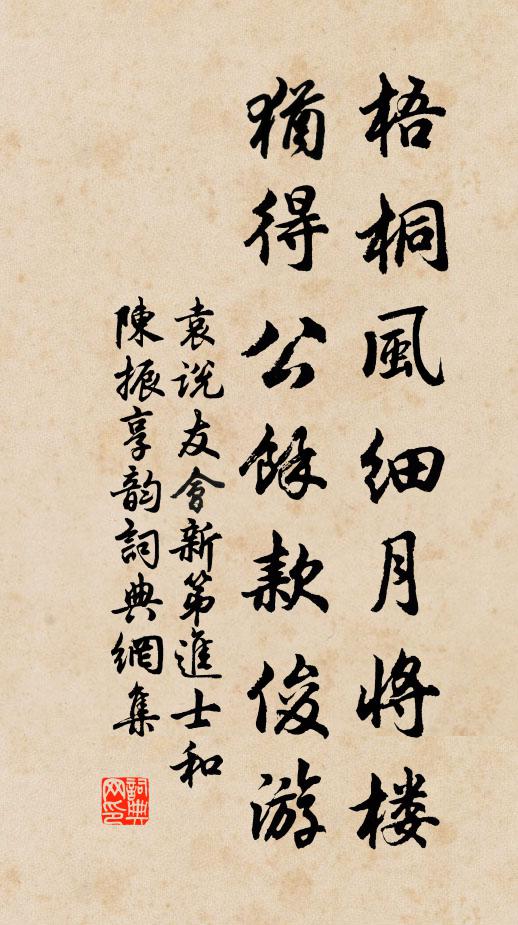 梧桐風细月将楼
猶得公餘款俊游
袁说友會新第進士和
陳振享韵詞典網集
詞典网印